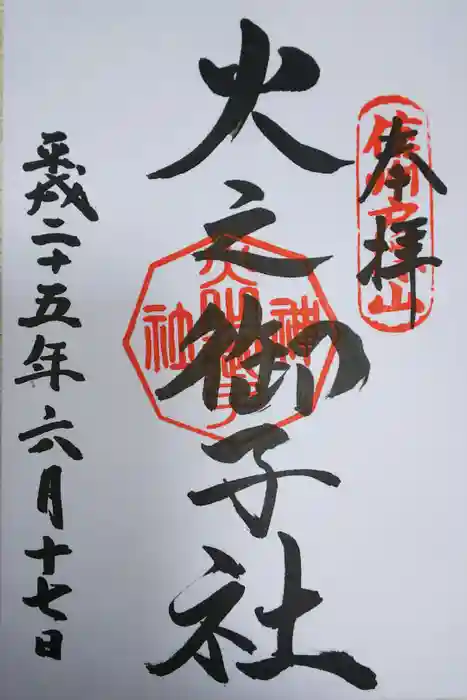 奉拝
信州戸隠山
火之御子社
神
社
平成二十五年六月十七日